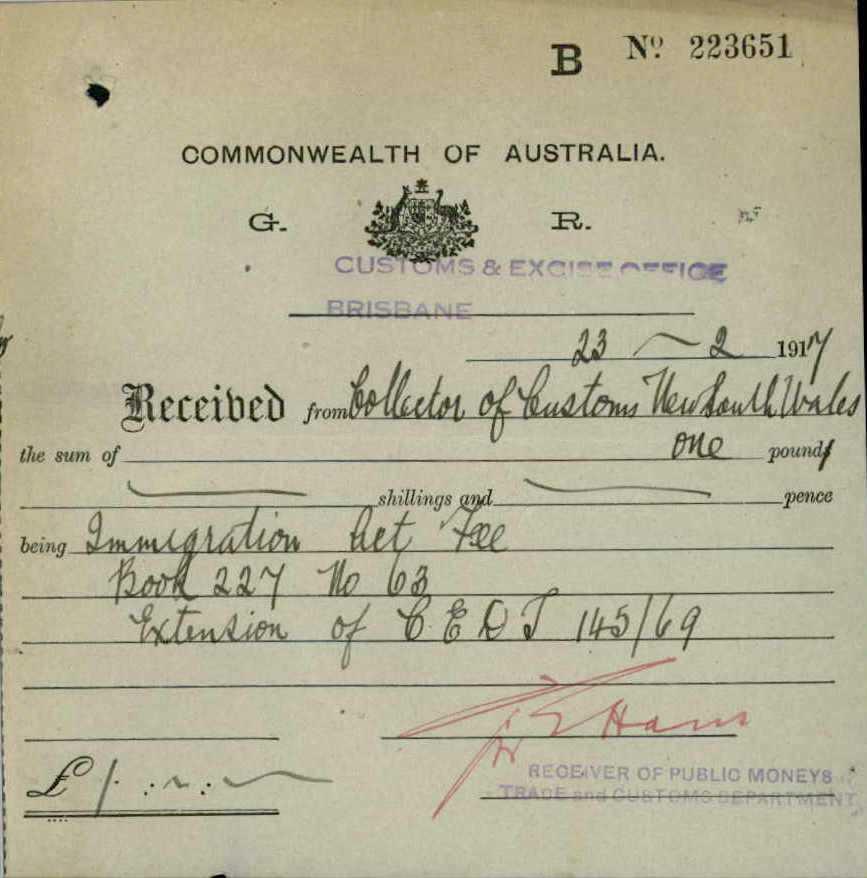 B No 223651
COMMONWEALTH OF AUSTRALIA.
G. R.
CUSTOMS & EXCISE OFFICE
BRISBANE
23 - 2 1917
Received from Collector of Customs New South Wales
the sum of one pound
shillings and pence
being Immigration Act Fee
Book 227 No 63
Extension of C E D T 145/69
£ 1 . - . -
RECEIVER OF PUBLIC MONEYS
TRADE and CUSTOMS DEPARTMENT